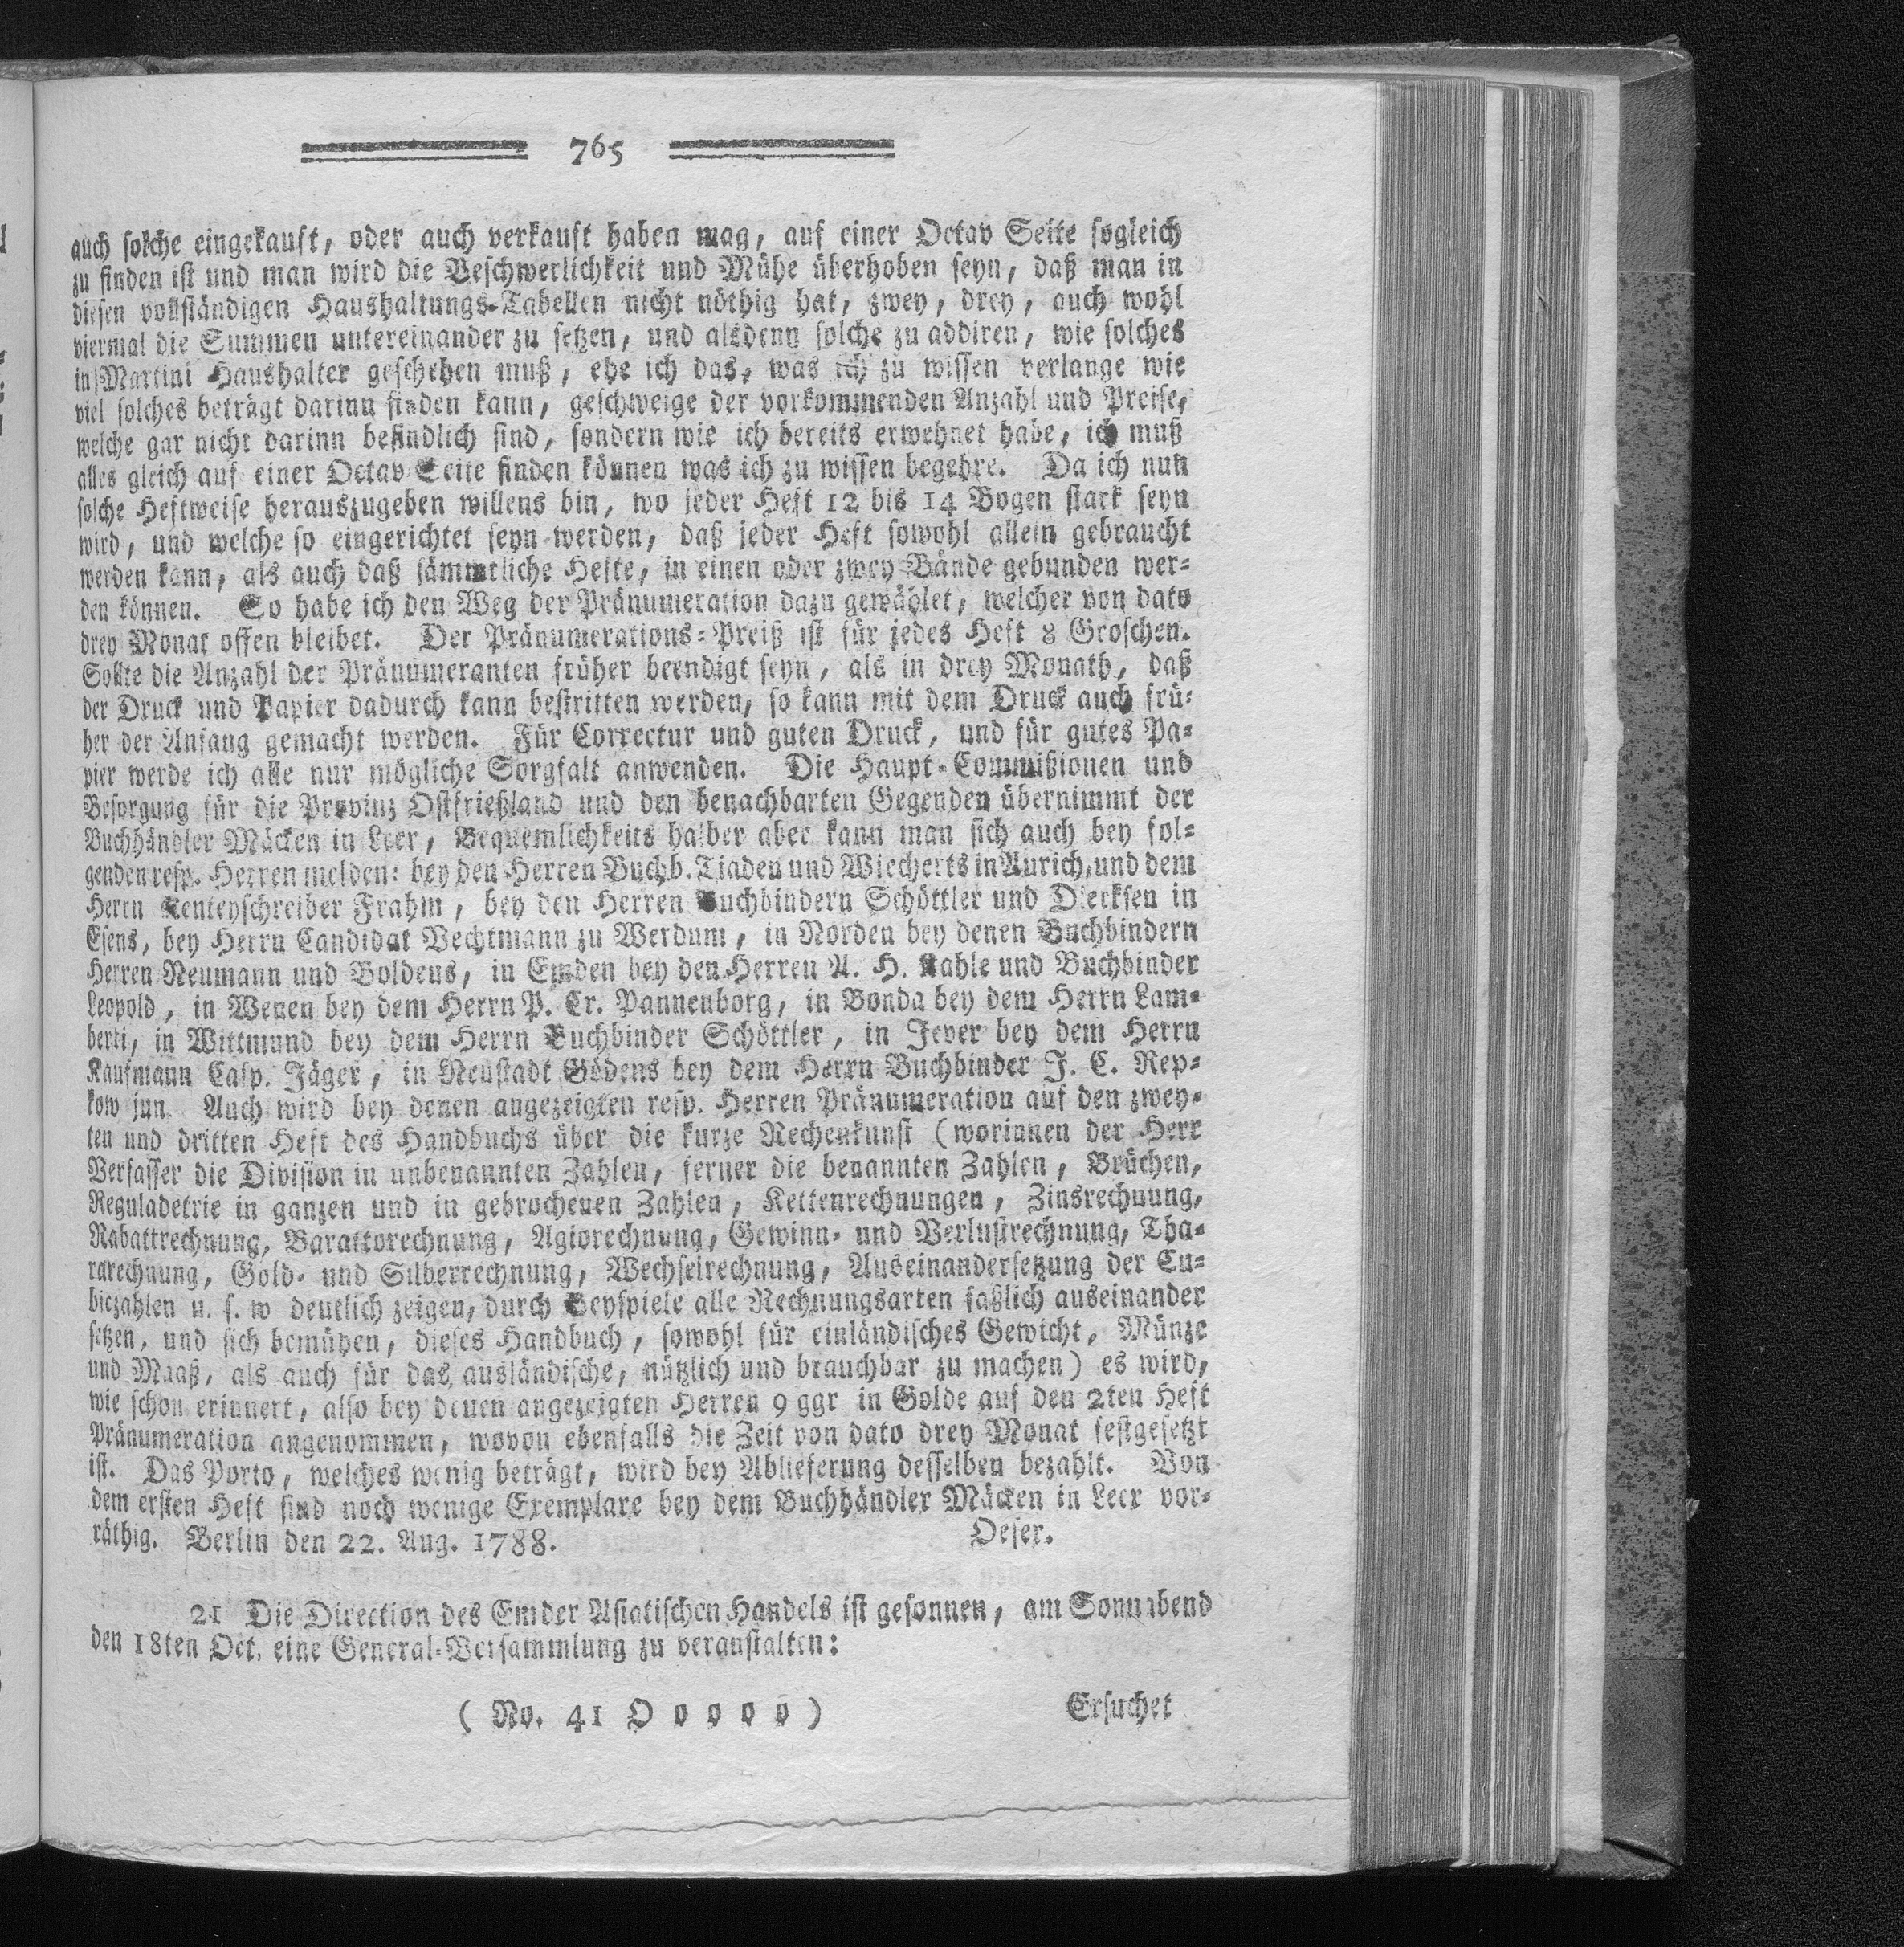 765
auch solche eingekauft, oder auch verkauft haben mag, auf einer Octav Seite sogleich
zu finden ist und man wird die Beschwerlichkeit und Mühe überhoben seyn, daß man in
diesen vollständigen Haushaltungs-Tabellen nicht nöthig hat, zwey, drey, auch wohl
viermal die Summen untereinander zu setzen, und alsdenn solche zu addiren, wie solches
in Martini Haushalter geschehen muß, ehe ich das, was ich zu wissen verlange wie
viel solches beträgt darinn finden kann, geschweige der vorkommenden Anzahl und Preise,
welche gar nicht darinn befindlich sind, sondern wie ich bereits erwehnet habe, ich muß
alles gleich auf einer Octav Seite finden können was ich zu wissen begehre. Da ich nun
solche Heftweise herauszugeben willens bin, wo jeder Heft 12 bis 14 Bogen stark seyn
wird, und welche so eingerichtet seyn werden, daß jeder Heft sowohl allein gebraucht
werden kann, als auch daß sämmtliche Hefte, in einen oder zwey Bände gebunden wer-
den können. So habe ich den Weg der Pränumeration dazu gewählet, welcher von dato
drey Monat offen bleibet. Der Pränumerations-Preiß ist für jedes Heft 8 Groschen.
Sollte die Anzahl der Pränumeranten früher beendigt seyn, als in drey Monath, daß
der Druck und Papier dadurch kann bestritten werden, so kann mit dem Druck auch frü-
her der Anfang gemacht werden. Für Correctur und guten Druck, und für gutes Pa-
pier werde ich alle nur mögliche Sorgfalt anwenden. Die Haupt-Commißionen und
Besorgung für die Provinz Ostfrießland und den benachbarten Gegenden übernimmt der
Buchhändler Mäcken in Leer, Bequemlichkeits halber aber kann man sich auch bey fol-
genden resp. Herren melden: bey den Herren Buchb. Tiaden und Wiecherts in Aurich, und dem
Herrn Renteyschreiber Frahm, bey den Herren Buchbindern Schöttler und Diecksen in
Esens, bey Herrn Candidat Vechtmann zu Werdum, in Norden bey denen Buchbindern
Herren Neumann und Boldeus, in Emden bey den Herren A. H. Kahle und Buchbinder
Leopold, in Wenen bey dem Herrn P. Cr. Pannenborg, in Bonda bey dem Herrn Lam-
berti, in Wittmund bey dem Herrn Buchbinder Schöttler, in Jever bey dem Herrn
Kaufmann Casp. Jäger, in Neustadt Gödens bey dem Herrn Buchbinder J. C. Rep-
kow jun. Auch wird bey denen angezeigten resp. Herren Pränumeration auf den zwey-
ten und dritten Heft des Handbuchs über die kurze Rechenkunst (worinnen der Herr
Verfasser die Division in unbenannten Zahlen, ferner die benannten Zahlen, Brüchen,
Reguladetrie in ganzen und in gebrochenen Zahlen, Kettenrechnungen, Zinsrechnung,
Rabattrechnung, Barattorechnung, Agiorechnung, Gewinn- und Verlustrechnung, Tha-
rarechnung, Gold- und Silberrechnung, Wechselrechnung, Auseinandersetzung der Cu-
biczahlen u. s. w deutlich zeigen, durch Beyspiele alle Rechnungsarten faßlich auseinander
setzen, und sich bemühen, dieses Handbuch, sowohl für einländisches Gewicht, Münze
und Maaß, als auch für das ausländische, nützlich und brauchbar zu machen) es wird,
wie schon erinnert, also bey denen angezeigten Herren 9 ggr in Golde auf den 2ten Heft
Pränumeration angenommen, wovon ebenfalls die Zeit von dato drey Monat festgesetzt
ist. Das Porto, welches wenig beträgt, wird bey Ablieferung desselben bezahlt. Von
dem ersten Heft sind noch wenige Exemplare bey dem Buchhändler Mäcken in Leer vor-
räthig. Berlin den 22. Aug. 1788. Oeser.
21 Die Direction des Emder Asiatischen Handels ist gesonnen, am Sonnabend
den 18ten Oct. eine General-Versammlung zu veranstalten:
( No. 41 O o o o o ) Ersuchet